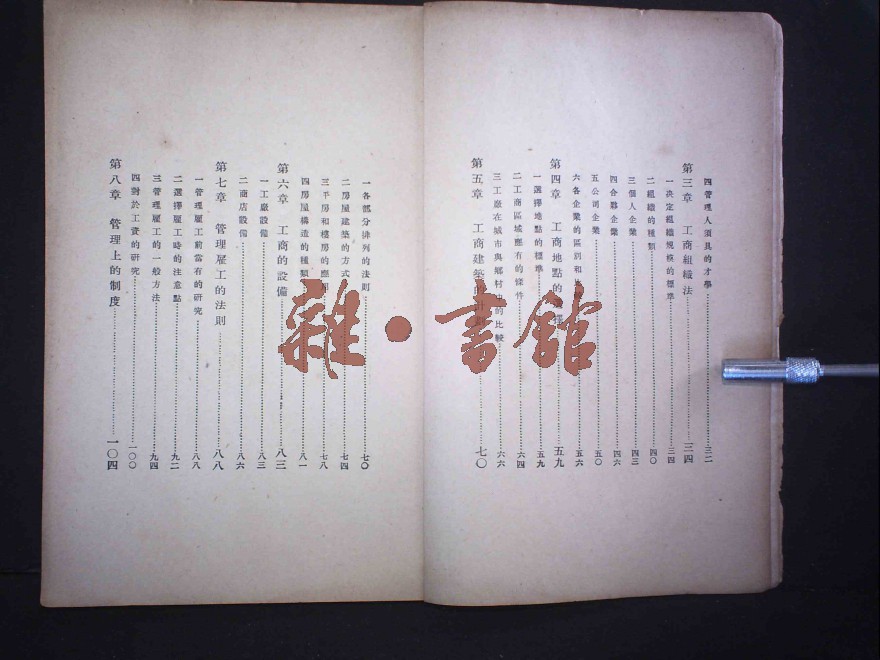 四管理人須具的才學……三二
第三章　工商組織法……三四
一決定組織規模的標準……三四
二組織的種類……四〇
三個人企業……四三
四合夥企業……四五
五公司企業……五〇
六各企業的區別和……五六
第四章　工商地點的……五九
一選擇地點的標準……五九
二工商區域應有的條件……六四
三工廠在城市與鄉村中的比較……六六
第五章　工商建築……七〇
一各部分排列的法則……七〇
二房屋建築的方式……七四
三平房和樓房的應用……七八
四房屋構造的種類……八一
第六章　工商的設備……八三
一工廠設備……八三
二商店設備……八六
第七章　管理雇工的法則……八八
一管理雇工前當有的研究……八八
二選擇雇工時的注意點……九二
三管理雇工的一般方法……九四
四對於工資的研究……一〇〇
第八章　管理上的制度……一〇四
雜·書館